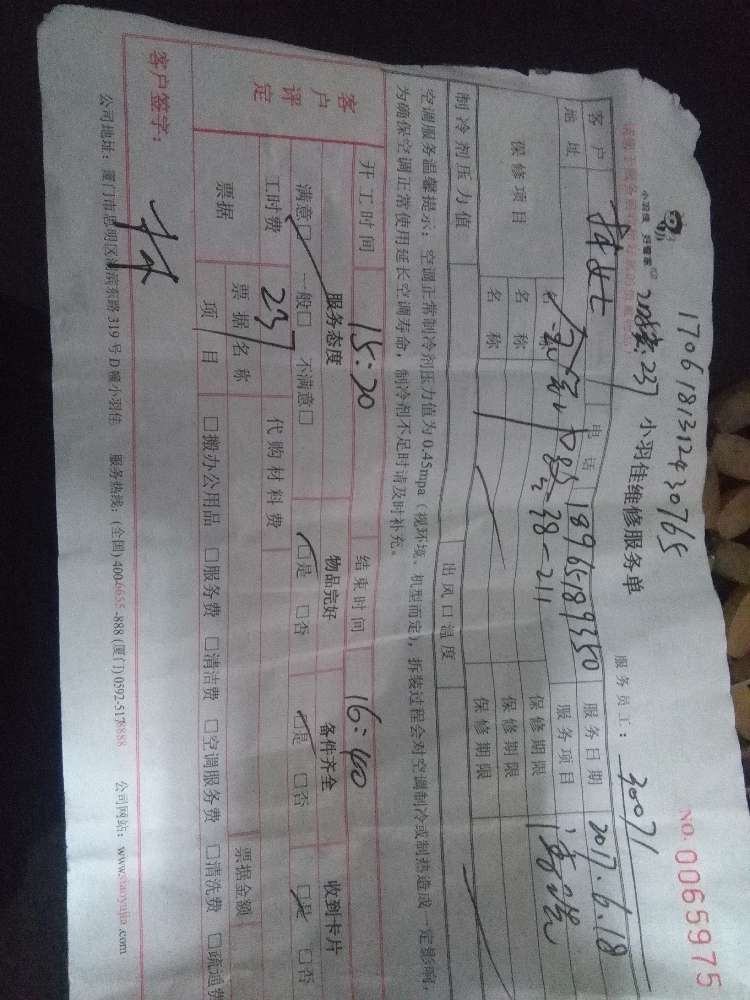 1706181312430765
NO: 0065975
小羽佳 好管家
小羽佳维修服务单
服务员工: 30071
客户 林女士 电话 18965189350 服务日期 2017.6.18
地址 服务项目
保修项目 名称 保修期限
名称 保修期限
名称 保修期限
制冷剂压力值 出风口温度
空调服务温馨提示：空调正常制冷剂压力值为0.45mpa（视环境、机型而定），拆装过程会对空调制冷或制热造成一定影响，
为确保空调正常使用延长空调寿命，制冷剂不足时请及时补充。
开工时间 15:20 结束时间 16:40
客户评定 服务态度 物品完好 备件齐全 收到卡片
满意□ 一般□ 不满意□ □是 □否 □是 □否 □是 □否
工时费 237 代购材料费
票据 票据名称 票据金额
项目 □搬办公用品 □服务费 □清洁费 □空调服务费 □清洗费 □疏通费
客户签字： 林
公司地址：厦门市思明区湖滨东路319号D幢小羽佳 服务热线：(全国)4006655-888 (厦门)0592-5178888 公司网站：www.xiaoyujia.com